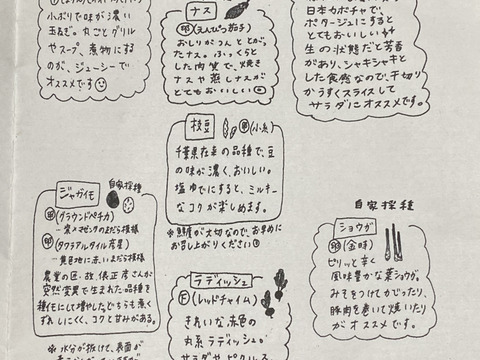 小ぶりで味が濃い
玉ねぎ。丸ごとグリル
やスープ、煮物にする
のが、ジューシーで
オススメです
ナス
(えんぴつ茄子)
おしりがつんととがっ
たナス。ふっくらと
した肉質で、焼き
ナスや蒸しナスが
とてもおいしい
日本カボチャで、
ポタージュにすると
とてもおいしい
生の状態だと芳香
があり、シャキシャキと
した食感なので、千切り
かうすくスライスして
サラダにオススメです。
枝豆
千葉県在来の品種で、豆
の味が濃く、おいしい。
塩ゆでにすると、ミルキー
なコクが楽しめます。
※鮮度が大切なので、お早めに
お召し上がりください
ジャガイモ
自家採種
(グラウンドペチカ)
(タワラアルタイル片星)
黄色地に赤いまだら模様
農業の匠・故、俵正彦さんが
突然変異で生まれた品種を
種イモにして増やした。どちらも煮く
ずれしにくく、コクと甘みがある。
※水分が抜けて、表面が
ラディッシュ
F(レッドチャイム)
きれいな赤色の
丸系ラディッシュが
サラダやピクルス
自家採種
ショウガ
(金時)
ピリッと辛く
風味豊かな葉ショウガ。
みそをつけてかじったり、
豚肉を巻いて焼いたり
がオススメです。